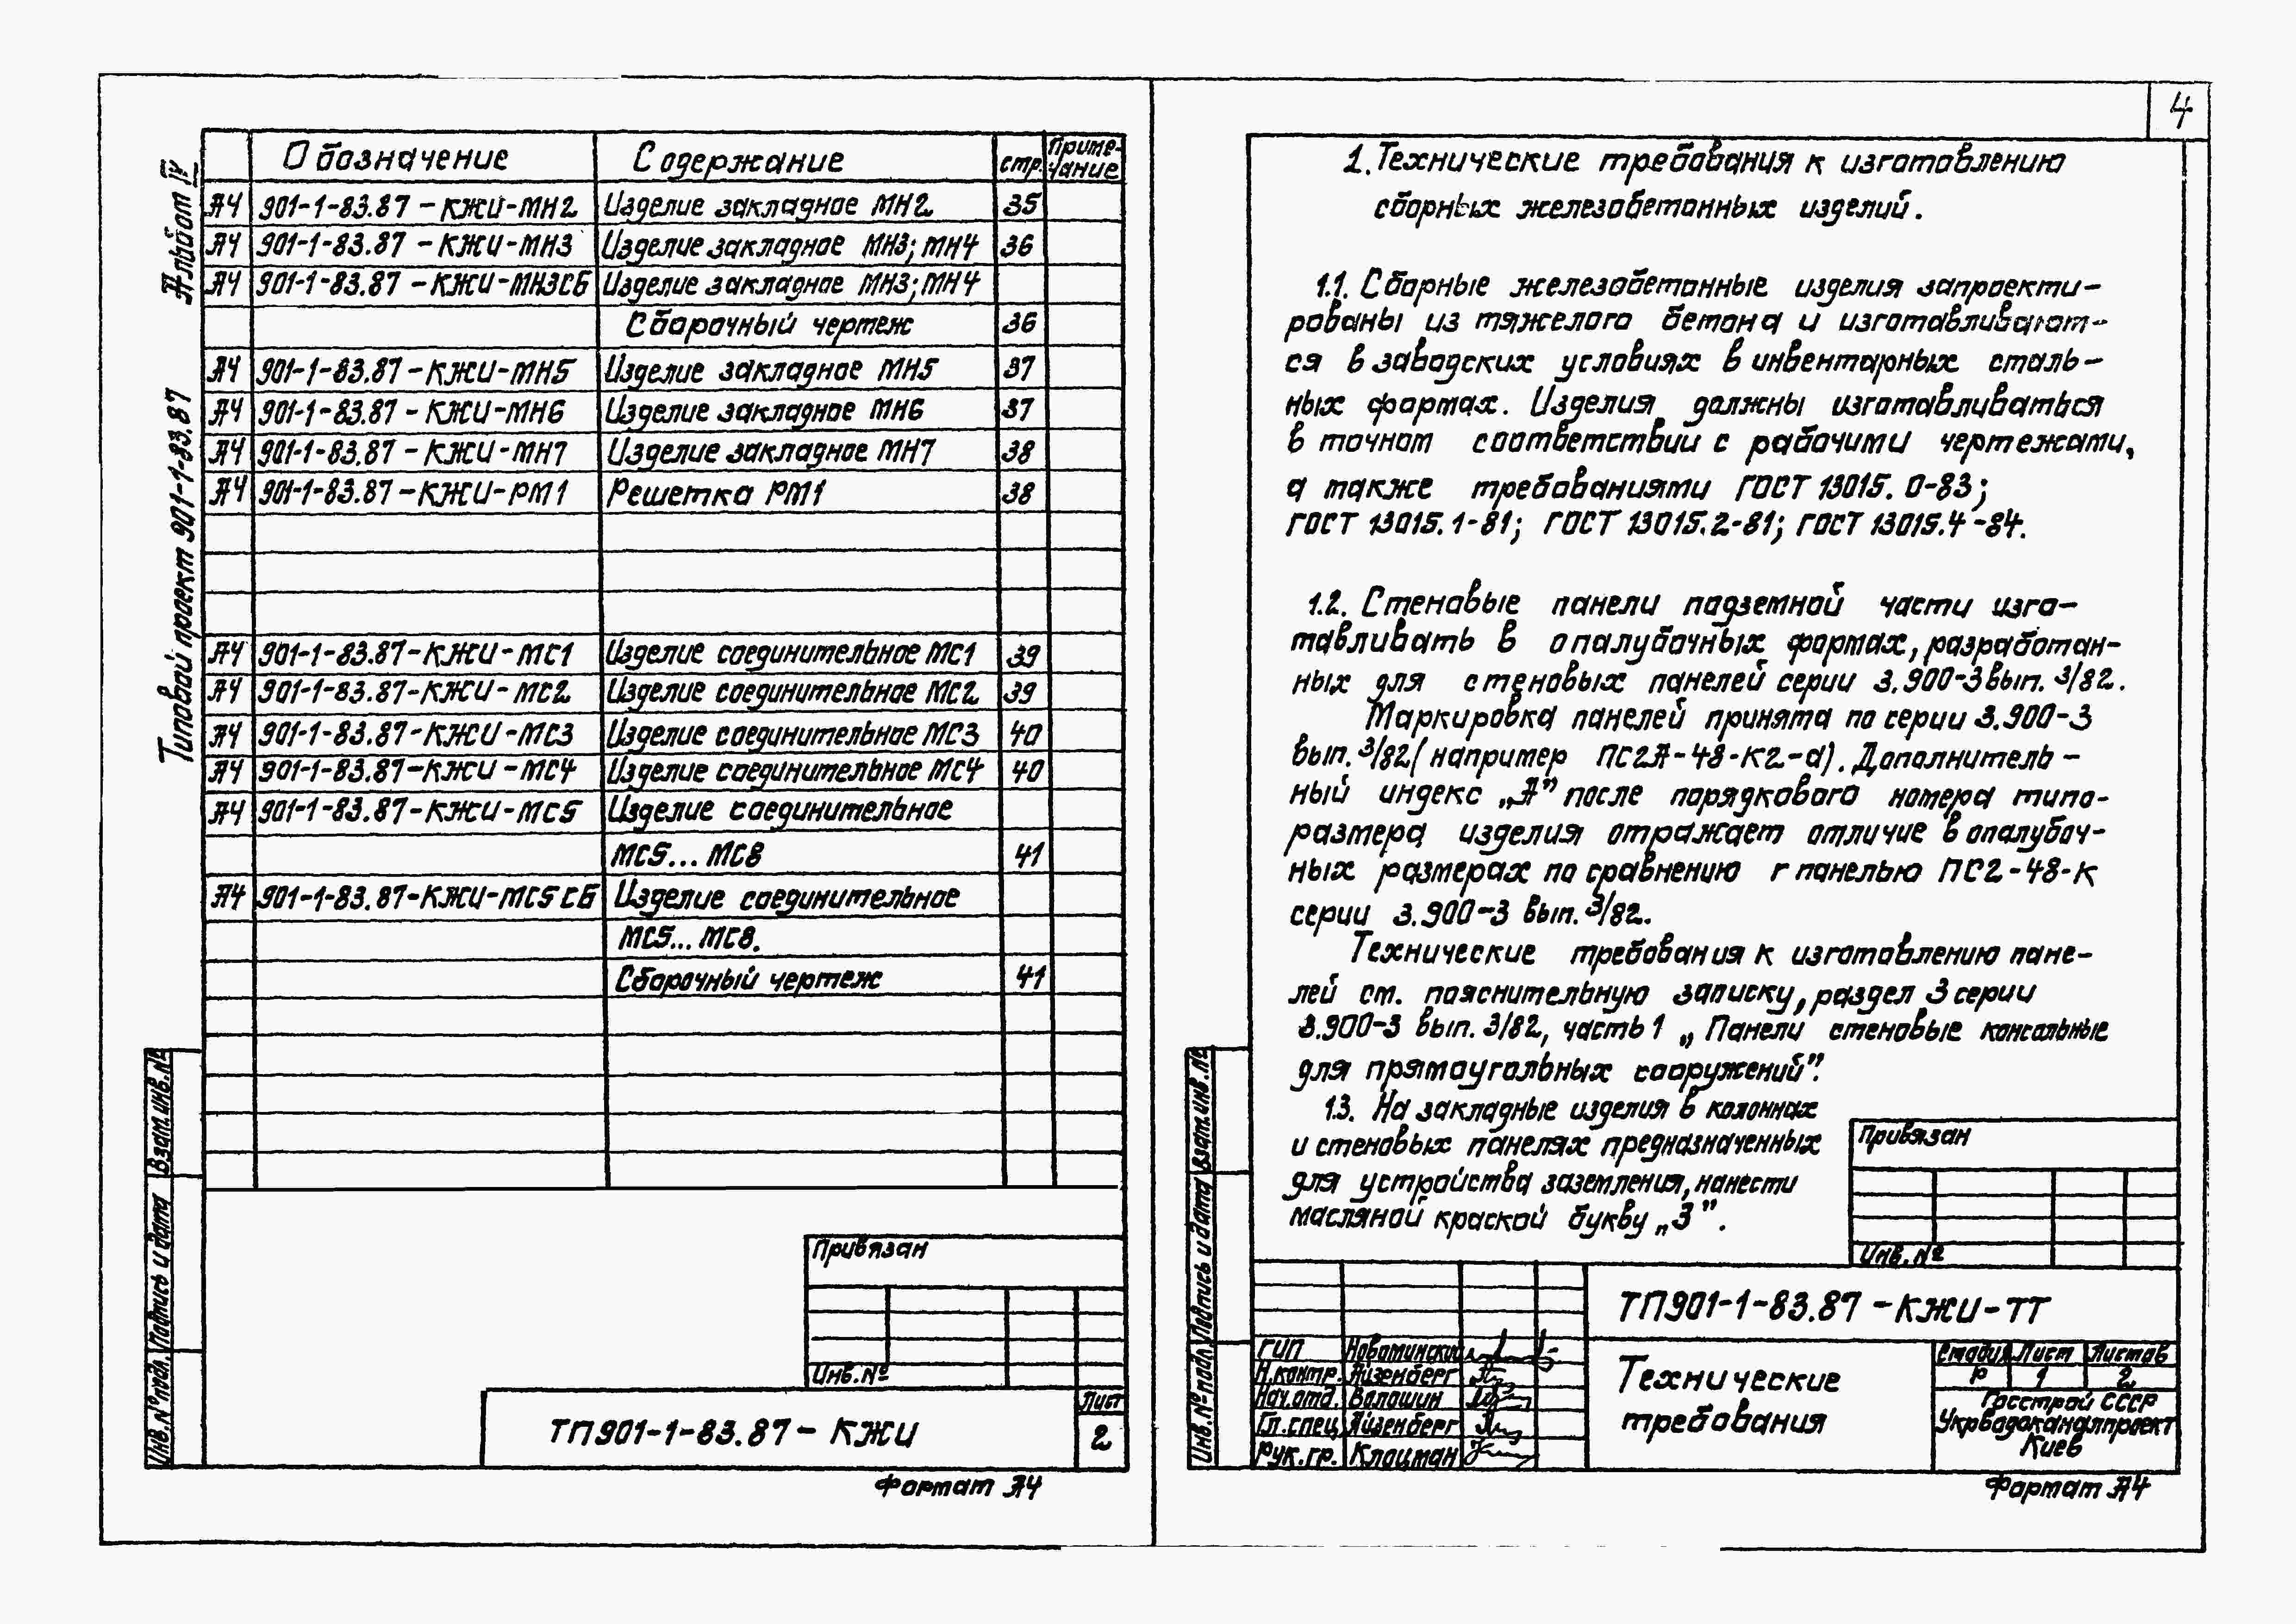 4
Альбом IV
Типовой проект 901-1-83.87
Обозначение Содержание стр. Приме-
чание
А4 901-1-83.87-КЖИ-МН2 Изделие закладное МН2 35
А4 901-1-83.87-КЖИ-МН3 Изделие закладное МН3; МН4 36
А4 901-1-83.87-КЖИ-МН3СБ Изделие закладное МН3; МН4
Сборочный чертеж 36
А4 901-1-83.87-КЖИ-МН5 Изделие закладное МН5 37
А4 901-1-83.87-КЖИ-МН6 Изделие закладное МН6 37
А4 901-1-83.87-КЖИ-МН7 Изделие закладное МН7 38
А4 901-1-83.87-КЖИ-РМ1 Решетка РМ1 38
А4 901-1-83.87-КЖИ-МС1 Изделие соединительное МС1 39
А4 901-1-83.87-КЖИ-МС2 Изделие соединительное МС2 39
А4 901-1-83.87-КЖИ-МС3 Изделие соединительное МС3 40
А4 901-1-83.87-КЖИ-МС4 Изделие соединительное МС4 40
А4 901-1-83.87-КЖИ-МС5 Изделие соединительное
МС5... МС8 41
А4 901-1-83.87-КЖИ-МС5СБ Изделие соединительное
МС5... МС8.
Сборочный чертеж 41
Взам.инв.№
Подпись и дата
Инв.№ подл.
Привязан
Инв.№
ТП901-1-83.87-КЖИ
Лист
2
Формат А4
1. Технические требования к изготовлению
сборных железобетонных изделий.
1.1. Сборные железобетонные изделия запроекти-
рованы из тяжелого бетона и изготавливают-
ся в заводских условиях в инвентарных сталь-
ных формах. Изделия должны изготавливаться
в точном соответствии с рабочими чертежами,
а также требованиями ГОСТ 13015.0-83;
ГОСТ 13015.1-81; ГОСТ 13015.2-81; ГОСТ 13015.4-84.
1.2. Стеновые панели подземной части изго-
тавливать в опалубочных формах, разработан-
ных для стеновых панелей серии 3.900-3 вып. 3/82.
Маркировка панелей принята по серии 3.900-3
вып. 3/82 (например ПС2А-48-К2-а). Дополнитель-
ный индекс „А” после порядкового номера типо-
размера изделия отражает отличие в опалубоч-
ных размерах по сравнению г панелью ПС2-48-К
серии 3.900-3 вып. 3/82.
Технические требования к изготовлению пане-
лей см. пояснительную записку, раздел 3 серии
3.900-3 вып. 3/82, часть 1 „Панели стеновые консольные
для прямоугольных сооружений”.
1.3. На закладные изделия в колоннах
и стеновых панелях предназначенных
для устройства заземления, нанести
масляной краской букву „З”.
Взам.инв.№
Подпись и дата
Инв.№ подл.
Привязан
Инв.№
ТП901-1-83.87-КЖИ-ТТ
ГИП Новоминский
Н.контр. Айзенберг
Нач.отд. Волошин
Гл.спец. Айзенберг
Рук.гр. Клоцман
Технические
требования
Стадия Лист Листов
Р 1 2
Госстрой СССР
Укрводоканалпроект
Киев
Формат А4